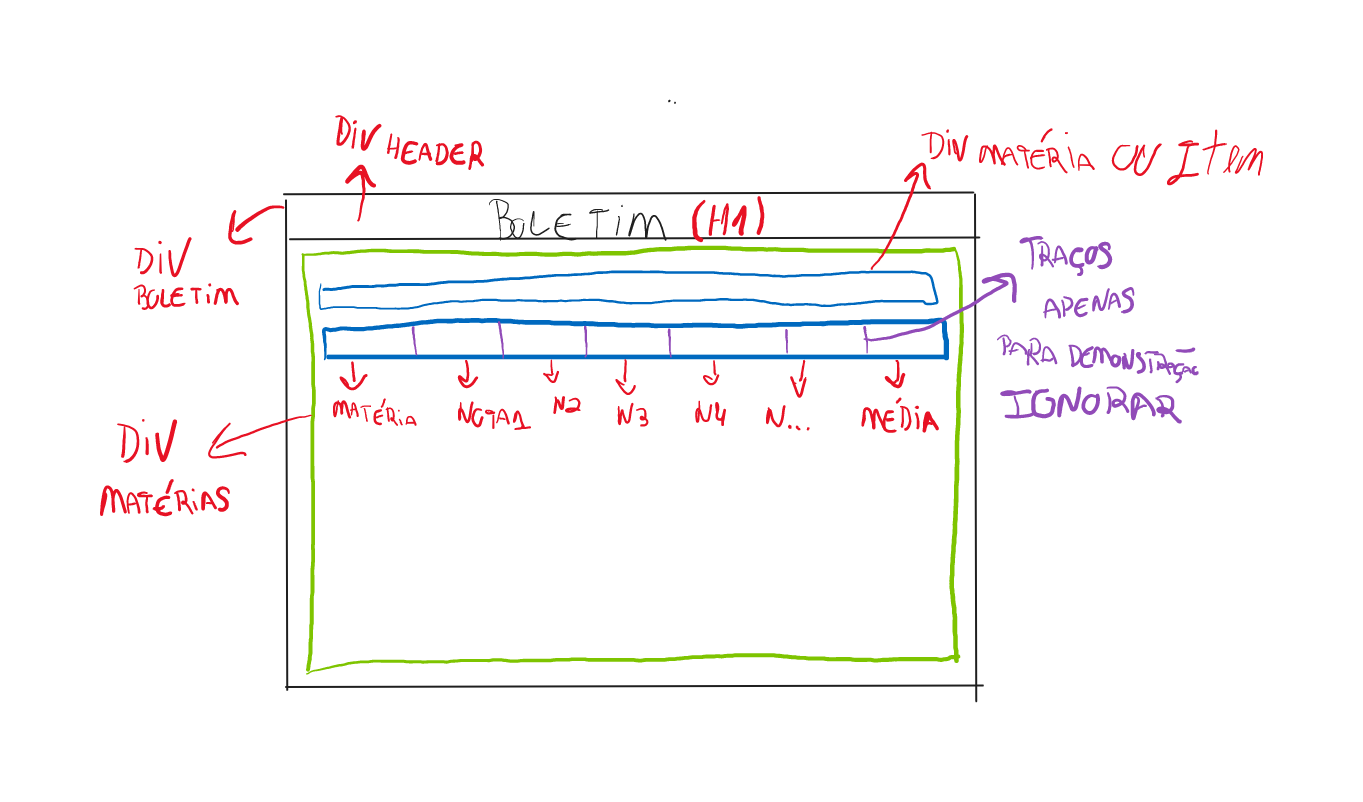 DiV HEADER
DiV MATÉRIA OU Item
BOLETIM (H1)
DiV
BOLETIM
TRAÇOS
APENAS
PARA DEMONSTRAÇÃO
IGNORAR
MATÉRIA NOTA1 N2 N3 N4 N... MÉDIA
DiV
MATÉRIAS